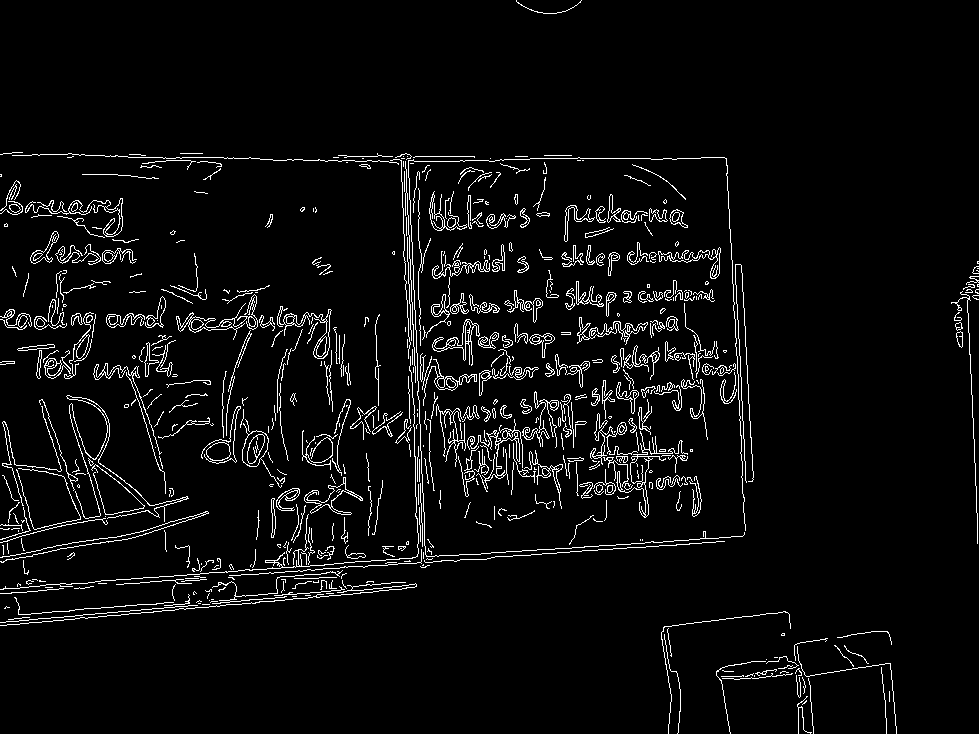 bruary
Lesson
eading and vocabulary
- Test unit 4
HR
do d xxx
jest
baker's - piekarnia
chemist's - sklep chemiczny
clothes shop - sklep z ciuchami
coffee shop - kawiarnia
computer shop - sklep
music shop - sklep muzyczny
newsagent's - kiosk
pet shop -
zoologiczny